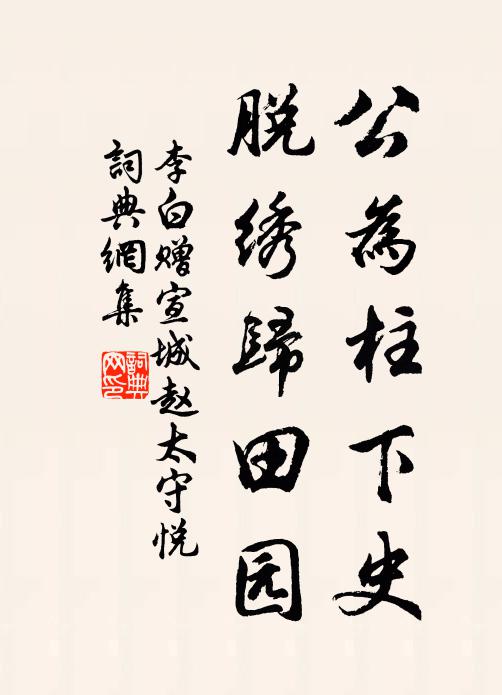 公為柱下史
脱绣歸田园
李白赠宣城赵太守悦
詞典網集